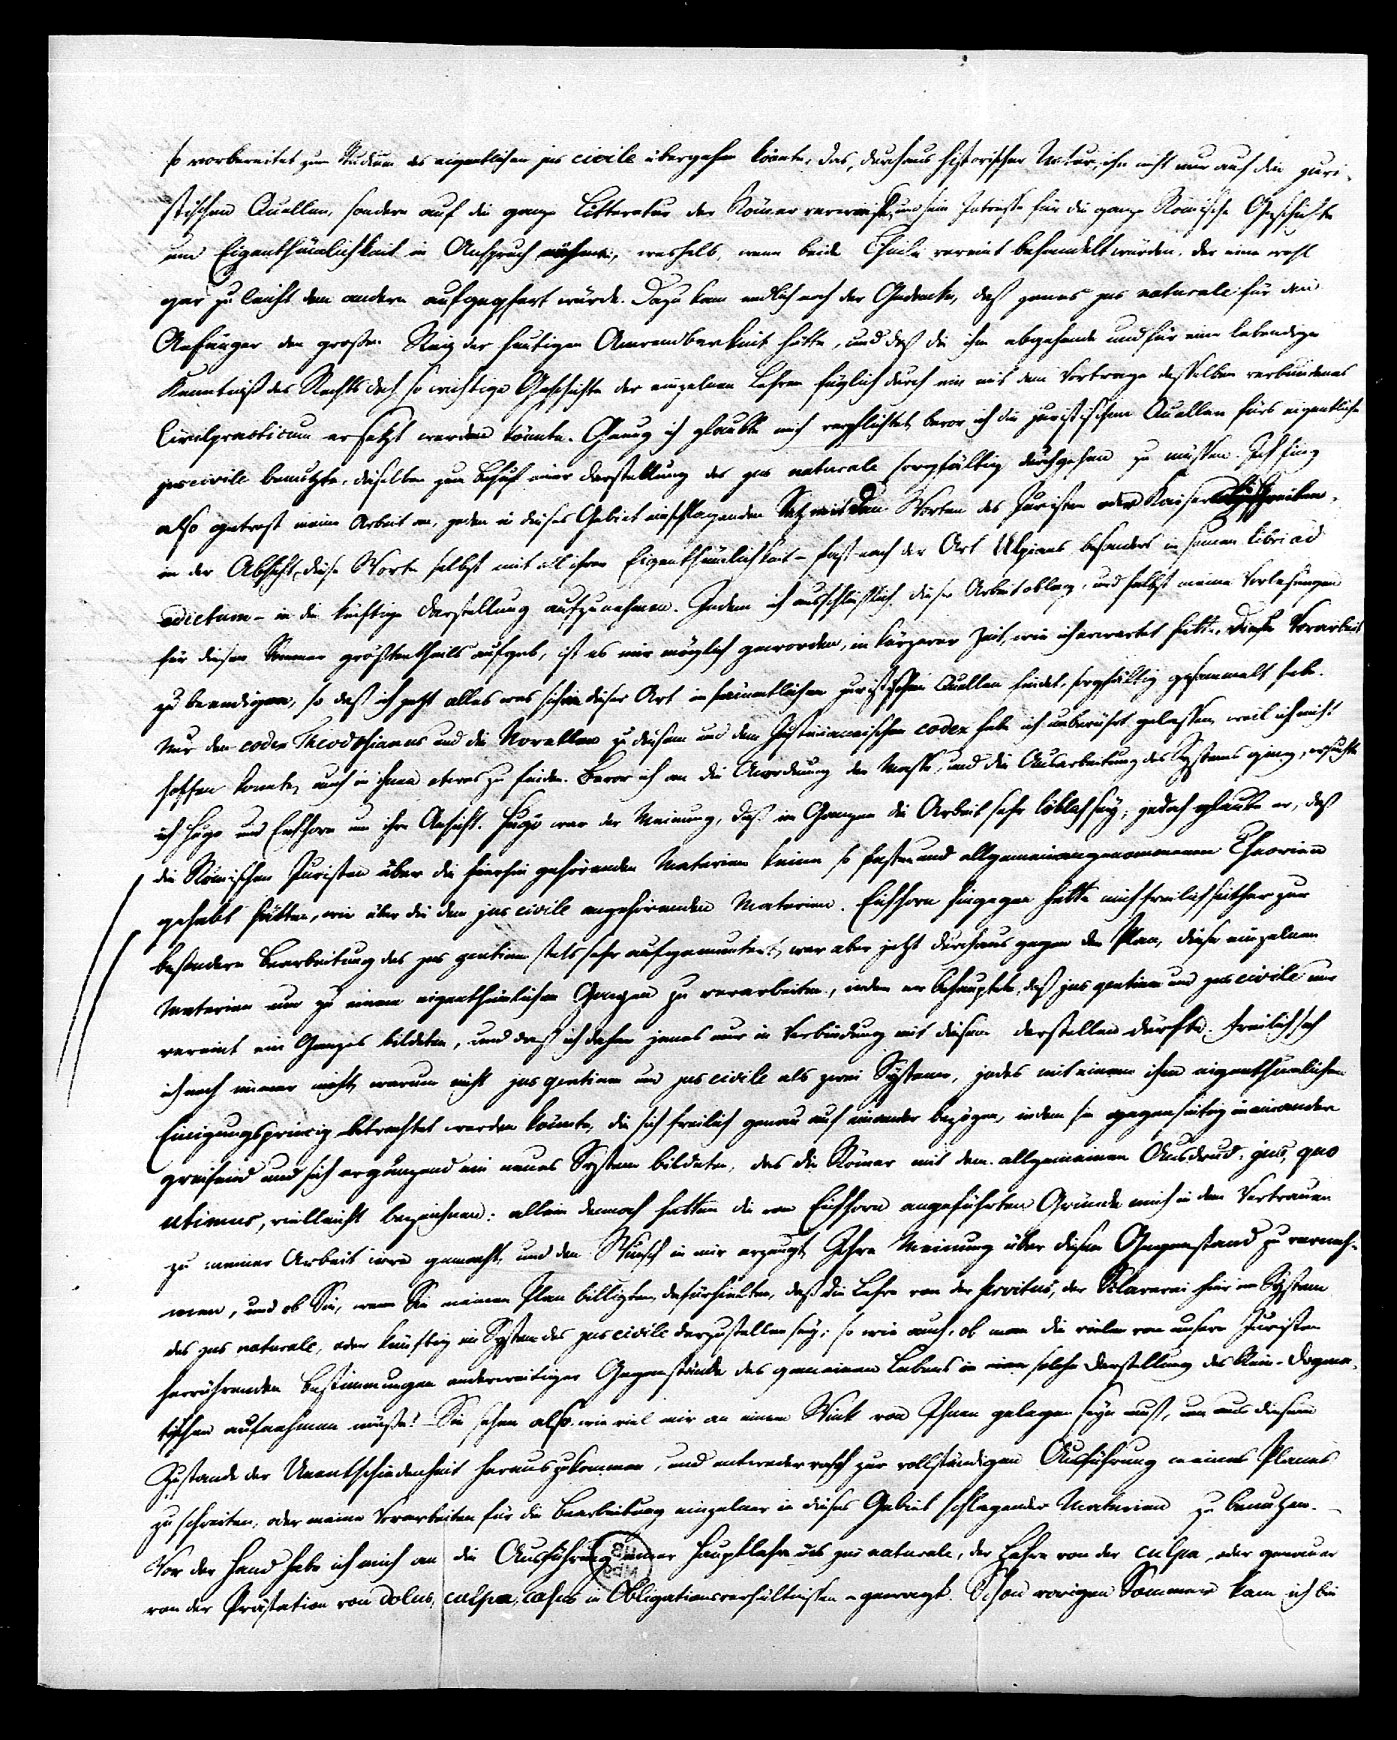 so vorbereitet zum Studium des eigentlichen jus civile übergehen könnte, das, durchaus historischer Natur, ihn nicht nur auf die juri-
stischen Quellen, sondern auf die ganze Litteratur der Römer verweist, und sein Interesse für die ganze Römische Geschichte
und Eigenthümlichkeit in Anspruch nähme; weshalb, wenn beide Theile vereint behandelt würden, der eine wohl
gar zu leicht dem andern aufgeopfert würde. Dazu kam endlich noch der Gedanke, daß jenes jus naturale für den
Anfänger den großen Reiz der heutigen Anwendbarkeit hätte, und daß die ihm abgehende und für eine lebendige
Kenntniß des Rechts doch so wichtige Geschichte der einzelnen Lehren füglich durch ein mit dem Vortrage desselben verbundenes
Civilpracticum ersetzt werden könnte. Genug ich glaubte mich verpflichtet, bevor ich die juristischen Quellen fürs eigentliche
jus civile benutzte, dieselben zum Behuf einer Darstellung des jus naturale sorgfältig durchgehen zu müssen. Ich fing
also getrost meine Arbeit an, jeden in dieses Gebiet einschlagenden Satz mit den Worten des Juristen oder Kaisers
in der Absicht, diese Worte selbst mit all ihrer Eigenthümlichkeit – fast nach der Art Ulpians besonders in seinen libri ad
edictum – in die künftige Darstellung aufzunehmen. Indem ich ausschließlich dieser Arbeit oblag, und selbst meine Vorlesungen
für diesen Sommer größtentheils aufgab, ist es mir möglich geworden, in kürzerer Zeit, wie ich erwartet hatte, diese Vorarbeit
zu beendigen, so daß ich jetzt alles was sich in dieser Art in sämmtlichen juristischen Quellen findet, sorgfältig gesammelt habe.
Nur den codex Theodosianus und die Novellen zu diesem und dem Justinianischen codex habe ich unberührt gelassen, weil ich nicht
hoffen konnte, auch in ihnen etwas zu finden. Bevor ich an die Anordnung der Masse, und die Ausarbeitung des Systems ging, ersuchte
ich Hugo und Eichhorn um ihre Ansicht. Hugo war der Meinung, daß im Ganzen die Arbeit sehr löblich sey; jedoch glaubte er, daß
die Römischen Juristen über die hierhin gehörenden Materien keine so festen und allgemein angenommenen Theorieen
gehabt hätten, wie über die dem jus civile angehörenden Materien. Eichhorn hingegen hatte mich freilich seither zur
besondern Bearbeitung des jus gentium stets sehr aufgemuntert, war aber jetzt durchaus gegen den Plan, diese einzelnen
Materien nun zu einem eigenthümlichen Ganzen zu verarbeiten, indem er behauptete, daß jus gentium und jus civile nur
vereint ein Ganzes bildeten, und daß ich daher jenes nur in Verbindung mit diesem darstellen dürfte. Freilich sah
ich noch immer nicht, warum nicht jus gentium und jus civile als zwei Systeme, jedes mit einem ihm eigenthümlichen
Einigungsprincip betrachtet werden könnte, die sich freilich genau auf einander bezögen, indem sie gegenseitig in einander
greifend und sich ergänzend ein neues System bildeten, das die Römer mit dem allgemeinen Ausdruck: jus, quo
utimur, vielleicht bezeichnen: allein dennoch hatten die von Eichhorn angeführten Gründe mich in dem Vertrauen
zu meiner Arbeit irre gemacht, und den Wunsch in mir erzeugt, Ihre Meinung über diesen Gegenstand zu verneh-
men, und ob Sie, wenn Sie meinen Plan billigten, dafürhielten, daß die Lehre von der servitus, der Sklaverei hier im System
des jus naturale, oder künftig im System des jus civile darzustellen sey; so wie auch, ob man die vielen von unsern Juristen
herrührenden Bestimmungen anderweitiger Gegenstände des gemeinen Lebens in eine solche Darstellung des Rein-Dogma-
tischen aufnehmen müßte? Sie sehen also wie viel mir an einem Wink von Ihnen gelegen seyn muß, um aus diesem
Zustande der Unentschiedenheit herauszukommen, und entweder rasch zur vollständigen Ausführung meines Planes
zu schreiten, oder meine Vorarbeiten für die Bearbeitung einzelner in dieses Gebiet schlagender Materien zu benutzen.
Vor der Hand habe ich mich an die Ausführung einer Hauptlehre des jus naturale, der Lehre von der culpa, oder genauer
von der Prästation von dolus, culpa, casus in Obligationsverhältnissen gewagt. Schon vorigen Sommer kam ich bei